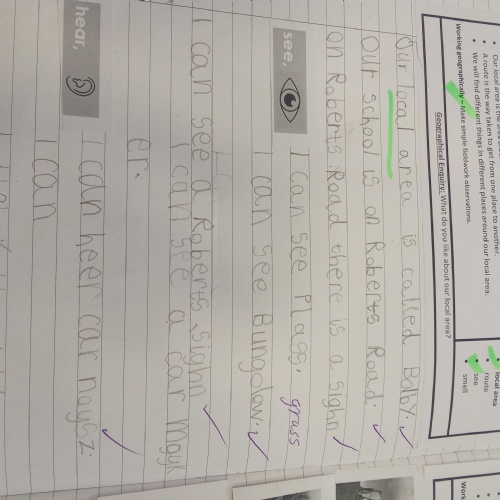 Our local area is the area
A route is the way taken to get from one place to another.
We will find different things in different places around our local area.
Working geographically – Make simple fieldwork observations.
Geographical Enquiry: What do you like about our local area?
local area
route
see
smell
Work
Our local area is called Balby.
Our school is on Roberts Road.
on Roberts Road there is a sighn
see,
I can see Plags. grass
I can see Bungolow.
I can see a Roberts sighn
I can see a car mayk
e
hear,
I can heer car noysz.
can